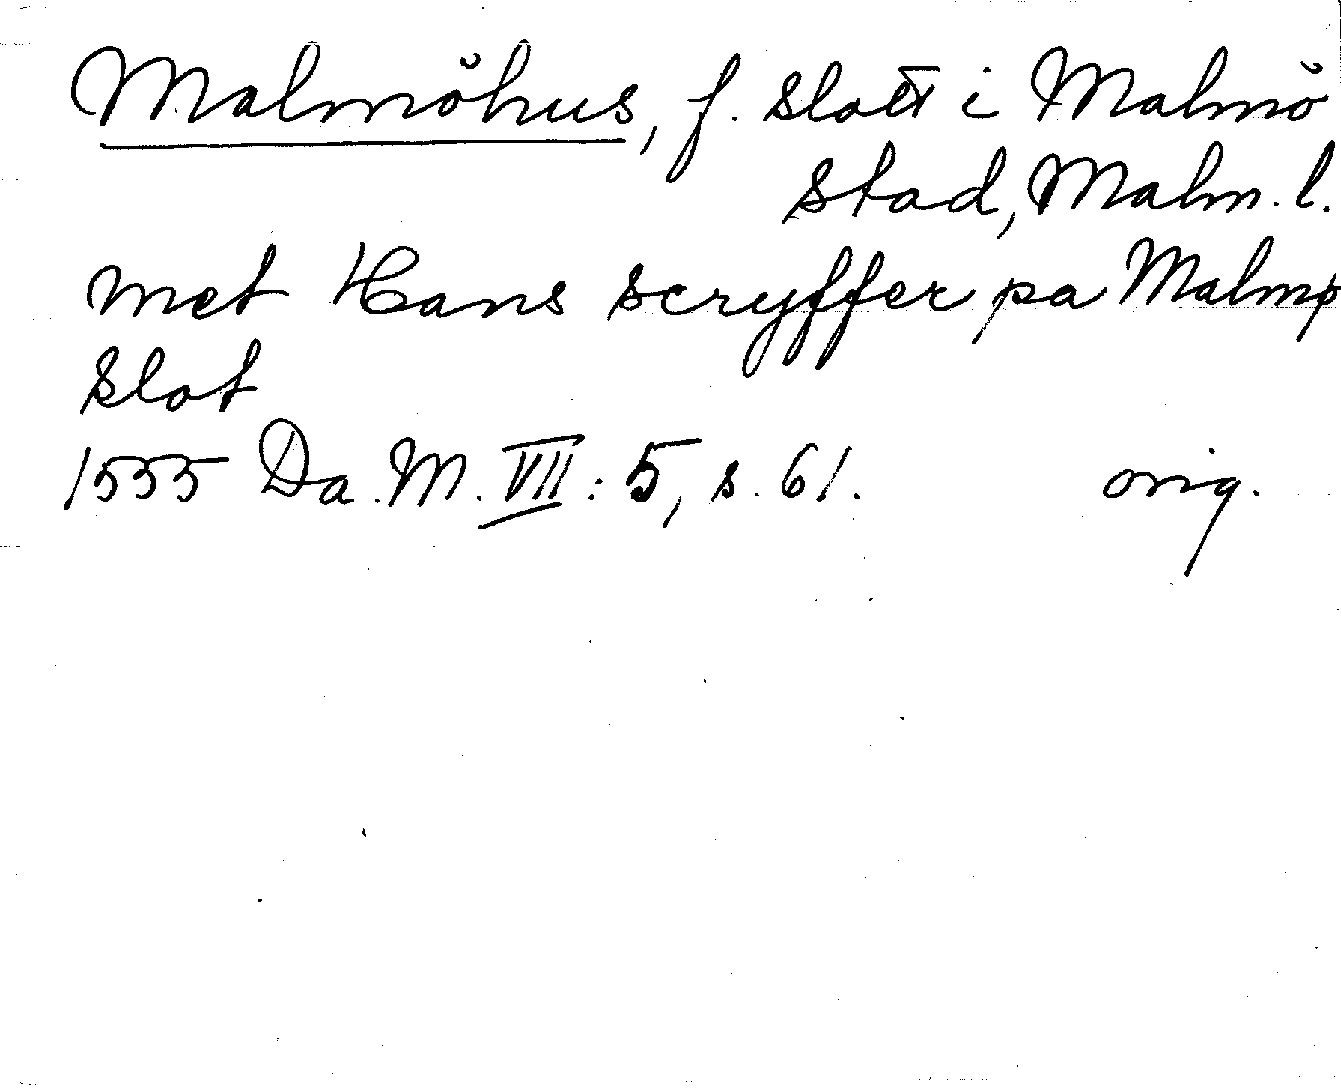 Malmöhus, f. slott i Malmö
stad, Malm. l.
met Hans scryffer pa Malmø
slot
1555 Da. M. VII: 5, s. 61. orig.